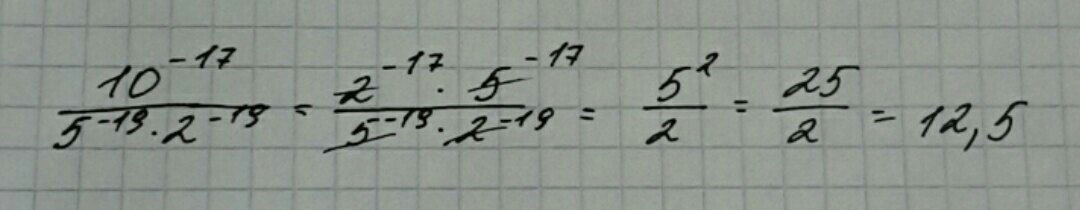 10⁻¹⁷ / (5⁻¹⁹ · 2⁻¹⁹) = (2⁻¹⁷ · 5⁻¹⁷) / (5⁻¹⁹ · 2⁻¹⁹) = 5² / 2 = 25 / 2 = 12,5